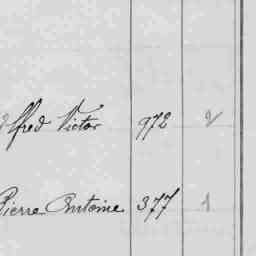 Alfred Victor 972 2
Pierre Antoine 377 1